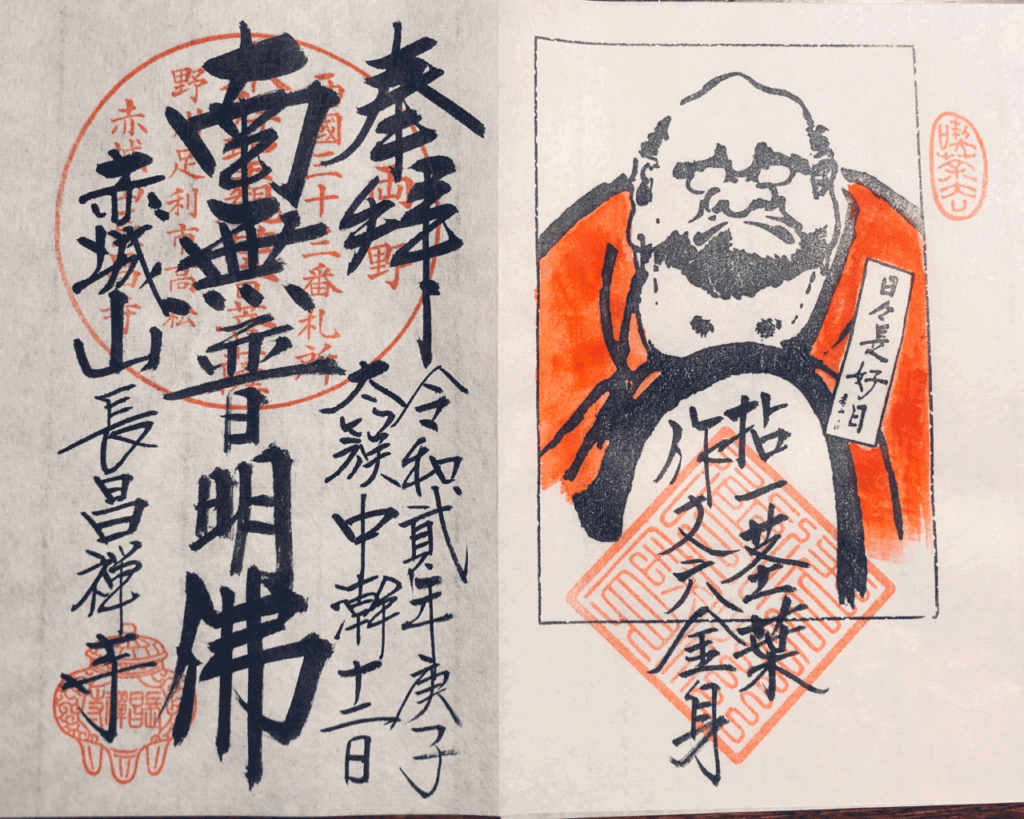 喫茶去
日々是好日
拈一茎葉
作丈六金身
奉拝
令和貳年庚子
太簇中澣十二日
南無普明佛
赤城山
長昌禅寺
両野
西國三十三番札所
野州足利市高松